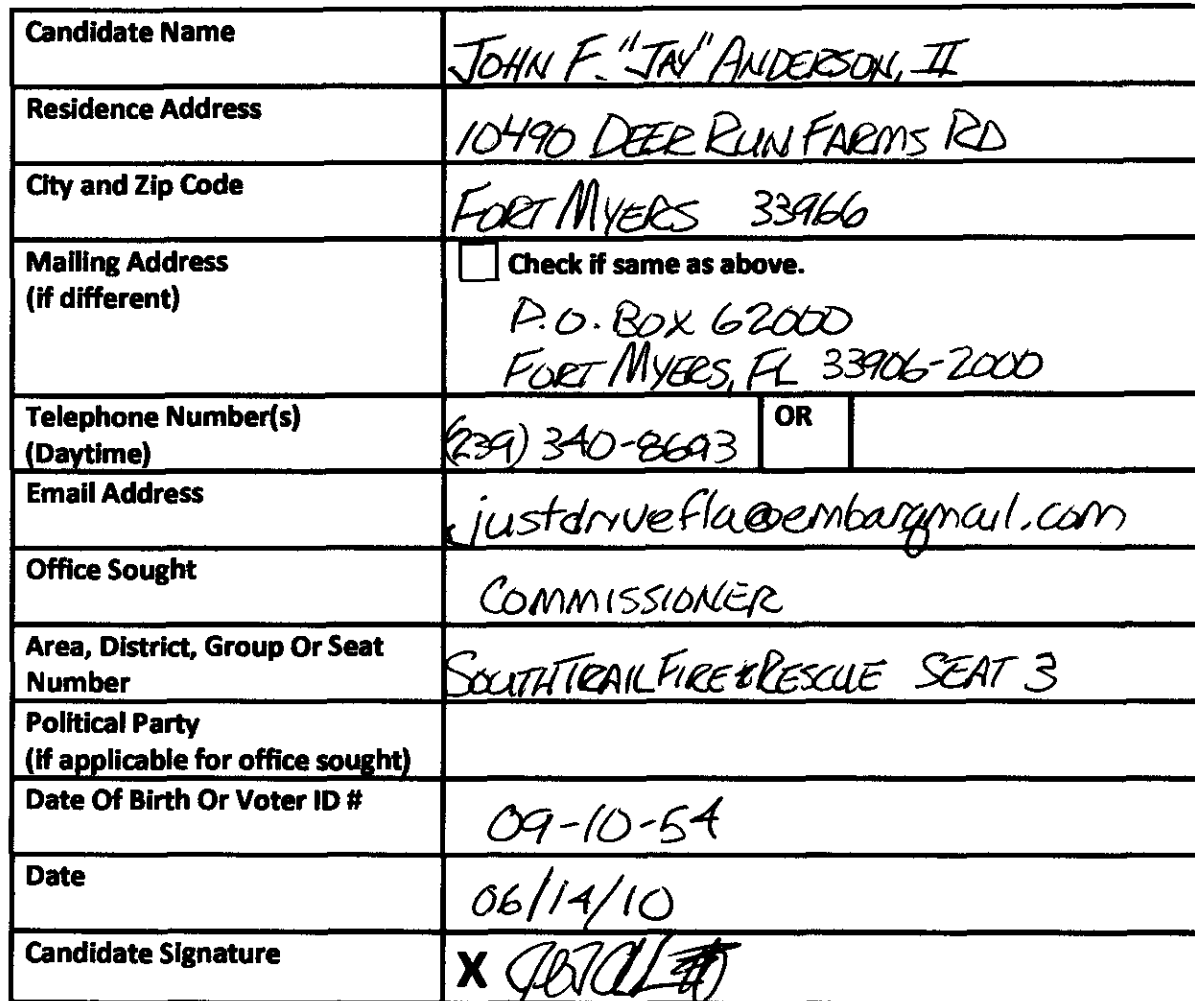 Candidate Name
JOHN F. "JAY" ANDERSON, II
Residence Address
10490 DEER RUN FARMS RD
City and Zip Code
FORT MYERS 33966
Mailing Address
(if different)
Check if same as above.
P.O. BOX 62000
FORT MYERS, FL 33906-2000
Telephone Number(s)
(Daytime)
(239) 340-8693
OR
Email Address
justdrivefla@embarqmail.com
Office Sought
COMMISSIONER
Area, District, Group Or Seat
Number
SOUTH TRAIL FIRE & RESCUE SEAT 3
Political Party
(if applicable for office sought)
Date Of Birth Or Voter ID #
09-10-54
Date
06/14/10
Candidate Signature
X